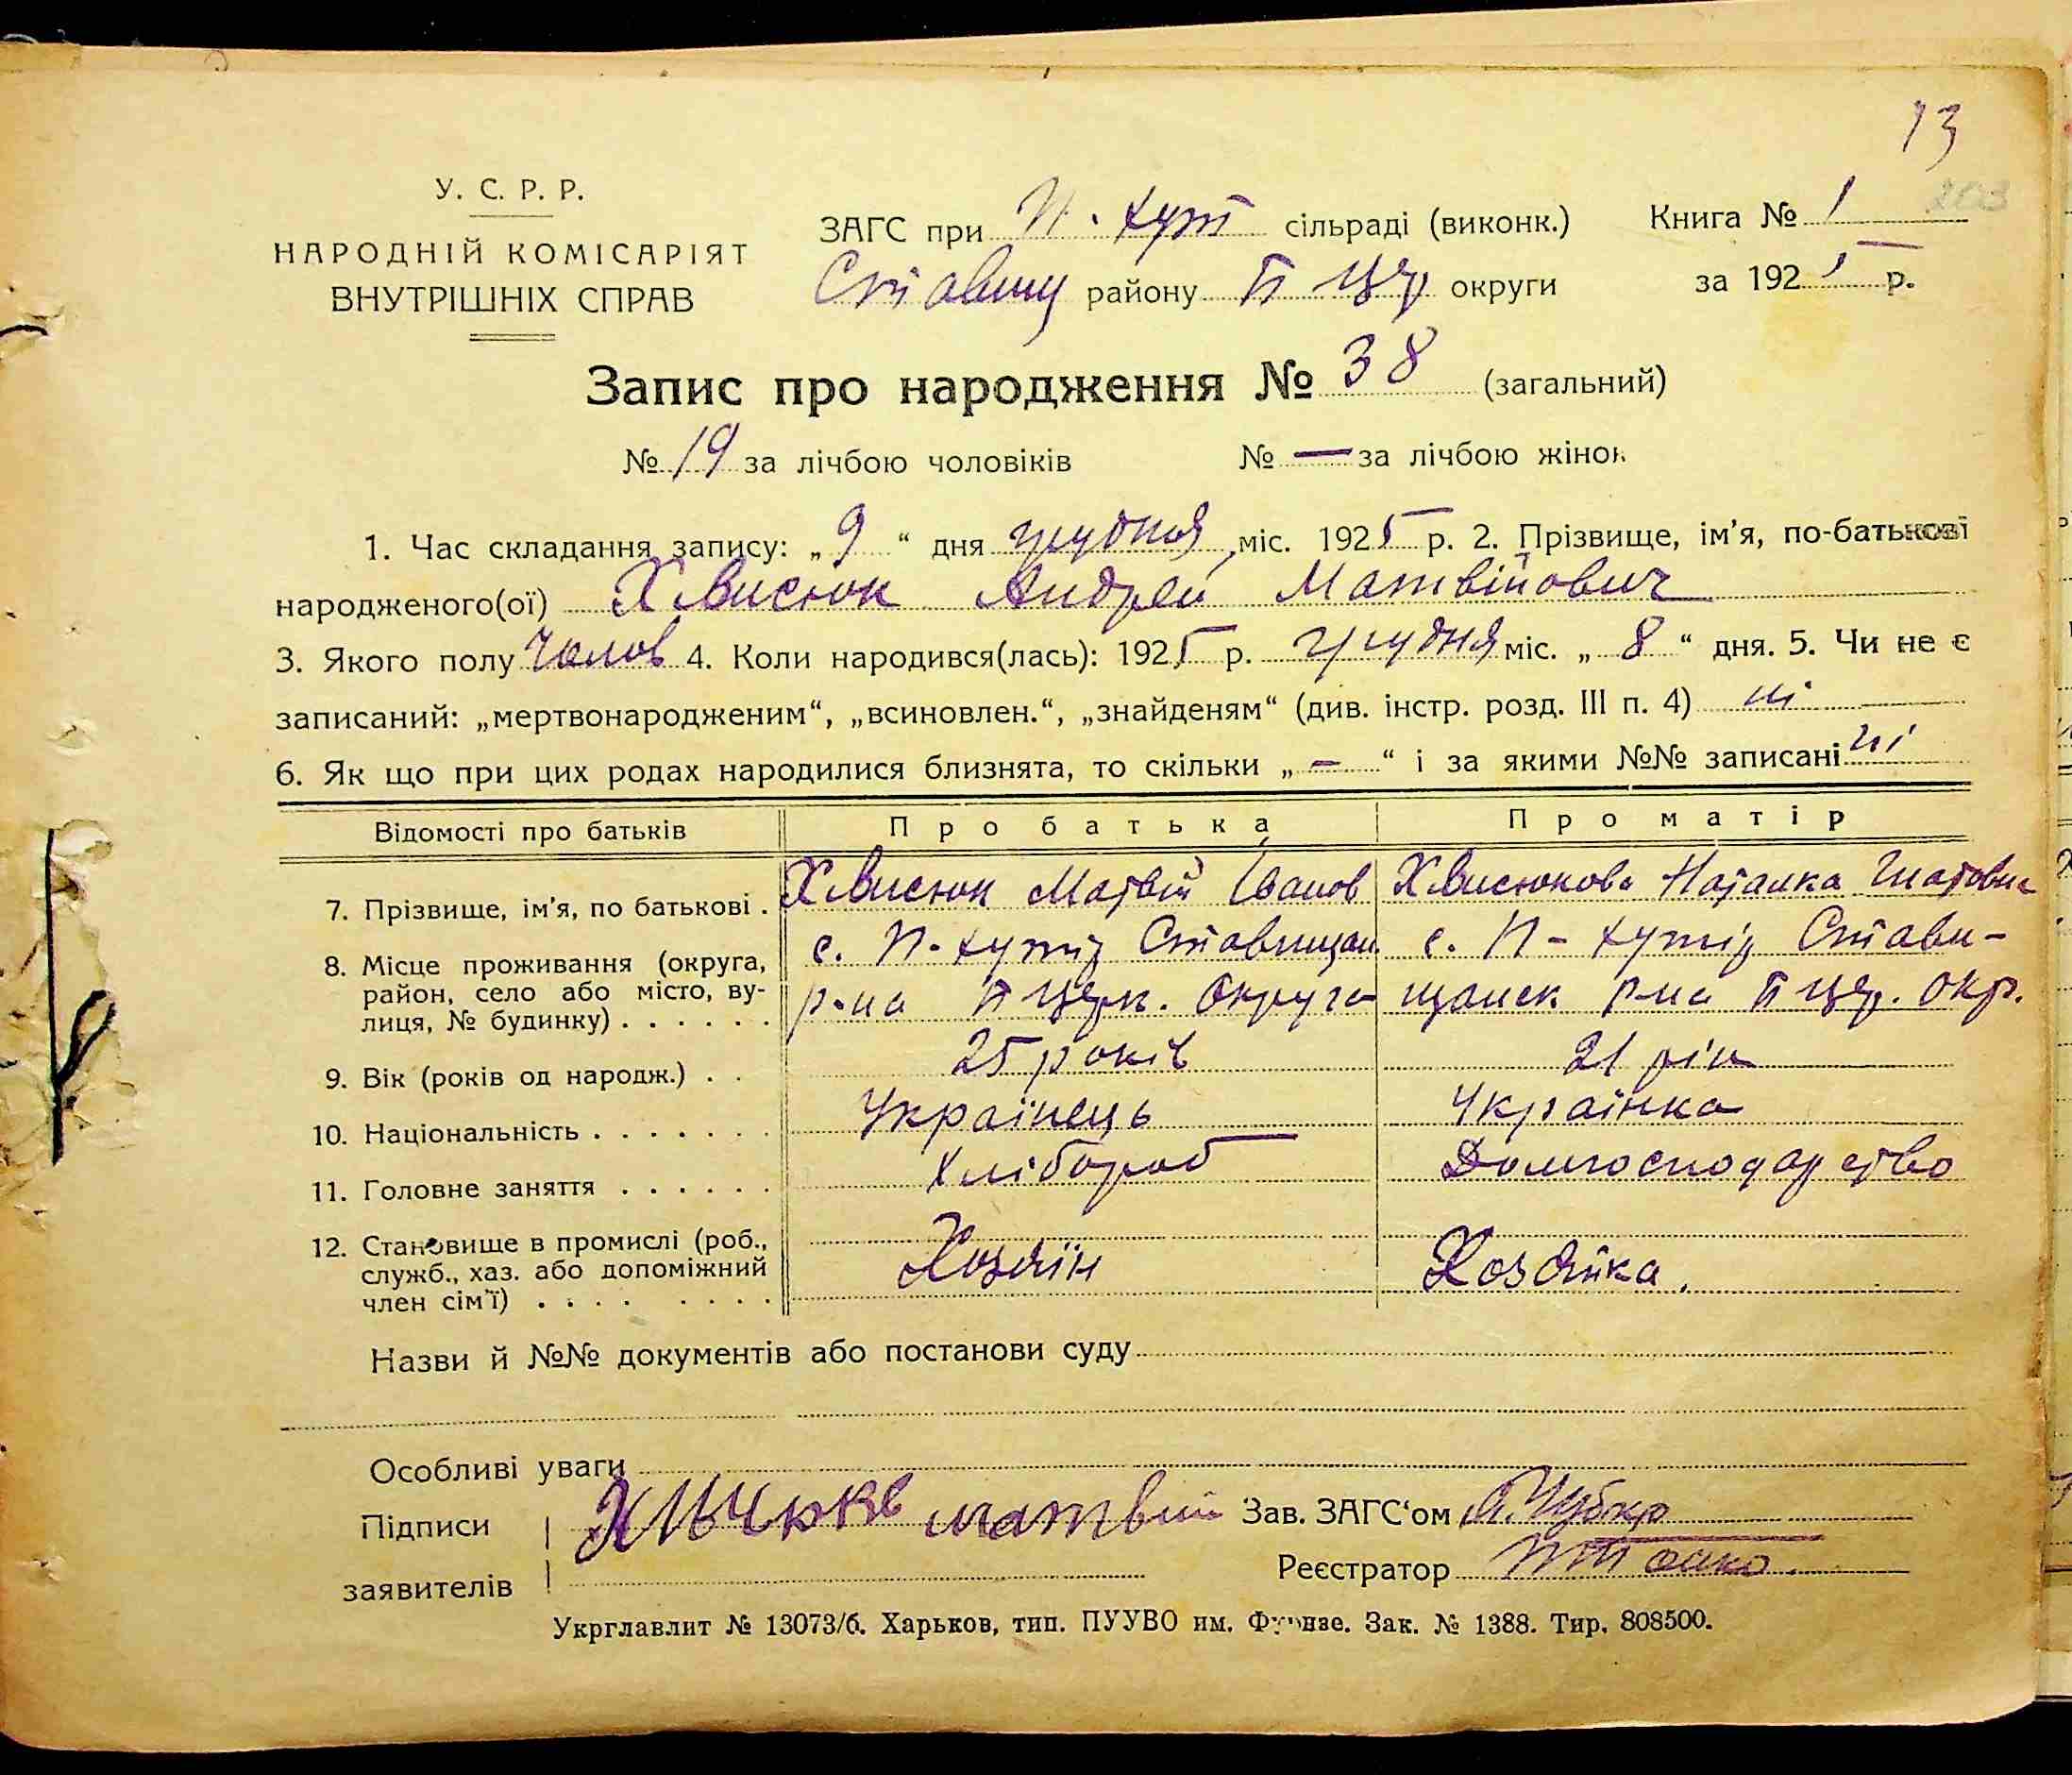 13
203
У. С. Р. Р.
НАРОДНІЙ КОМІСАРІЯТ
ВНУТРІШНІХ СПРАВ
ЗАГС при П. Хут сільраді (виконк.)
Ставищ району Б Цер округи
Книга № 1
за 1925 р.
Запис про народження № 38 (загальний)
№ 19 за лічбою чоловіків № — за лічбою жінок
1. Час складання запису: „9“ дня грудня міс. 1925 р. 2. Прізвище, ім’я, по-батькові
народженого(ої) Хвисюк Андрей Матвійович
3. Якого полу Чолов 4. Коли народився(лась): 1925 р. грудня міс. „8“ дня. 5. Чи не є
записаний: „мертвонародженим“, „всиновлен.“, „знайденям“ (див. інстр. розд. III п. 4) ні
6. Як що при цих родах народилися близнята, то скільки „—“ і за якими №№ записані ні
Відомості про батьків Про батька Про матір
7. Прізвище, ім’я, по батькові . Хвисюк Матвій Іванов Хвисюкова Наталка
8. Місце проживання (округа, район, село або місто, вулиця, № будинку) . . . . . .
с. П-Хутір Ставищан с. П-Хутір Стави-
р-на Б Церк. Округа щанск р-на Б Цер. Окр.
9. Вік (років од народж.) . . 25 років 21 рік
10. Національність . . . . . . . Українець Українка
11. Головне заняття . . . . . . Хлібороб Домгосподарство
12. Становище в промислі (роб., служб., хаз. або допоміжний член сім’ї) . . . . . . . . Хозяїн Хозяйка.
Назви й №№ документів або постанови суду
Особливі уваги
Підписи матвій Зав. ЗАГС‘ом
заявителів Реєстратор
Укрглавлит № 13073/б. Харьков, тип. ПУУВО им. Фрунзе. Зак. № 1388. Тир. 808500.